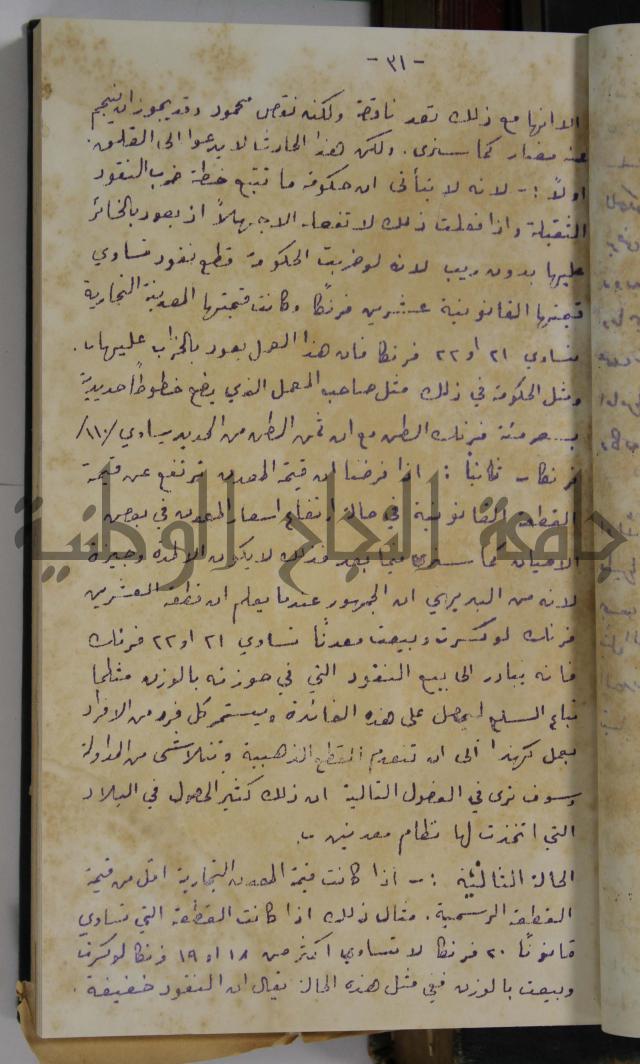 - ٣١ -
الا انها مع ذلك تعد ناقصة ولكنه نقص محمود وقد يجوز ان ينجم
عنه مضار كما سنرى. ولكن هذا الحادث لا يدعوا الى القلق.
اولاً :- لانه لا يتأتى ان حكومة ما تتبع خطة ضرب النقود
الثقيلة واذا فعلت ذلك لا تفعله الا جهلاً اذ يعود بالخسائر
عليها بدون ريب لانه لو ضربت الحكومة قطع نقود تساوي
قيمتها القانونية عشرين فرنكاً وكانت قيمتها المعدنية التجارية
تساوي ٢١ او ٢٢ فرنكا فان هذا العمل يعود بالخراب عليها.
ومثل الحكومة في ذلك مثل صاحب المعمل الذي يضع خطوطاً حديدية
بسعر مئة فرنك الطن مع ان ثمن الطن من الحديد يساوي /١١٠/
فرنكات ثانياً : اذا فرضنا ان قيمة المعدن ترتفع عن قيمة
القطعة القانونية في حالة ارتفاع اسعار المعدن في بعض
الاحيان كما سنرى فيما بعد فذلك لا يكون الا لمدة وجيزة
لانه من البديهي ان الجمهور عندما يعلم ان قطعة العشرين
فرنك لو كسرت وبيعت معدناً تساوي ٢١ او ٢٢ فرنك
فانه يبادر الى بيع النقود التي في حوزته بالوزن مثلما
تباع السلع ليحصل على هذه الفائدة ويستمر كل فرد من الافراد
بعمل كهذا الى ان تنعدم القطع الذهبية وتتلاشى من المداولة
وسوف نرى في الفصول التالية ان ذلك كثير الحصول في البلاد
التي اتخذت لها نظام معدنين.
الحالة الثالثة :- اذا كانت قيمة المعدن التجارية اقل من قيمة
القطعة الرسمية. مثال ذلك اذا كانت القطعة التي تساوي
قانوناً ٢٠ فرنكا لا تساوي اكثر من ١٨ او ١٩ فرنكا لو كسرت
وبيعت بالوزن ففي مثل هذه الحالة يقال ان النقود خفيفة.
جامعة النجاح الوطنية